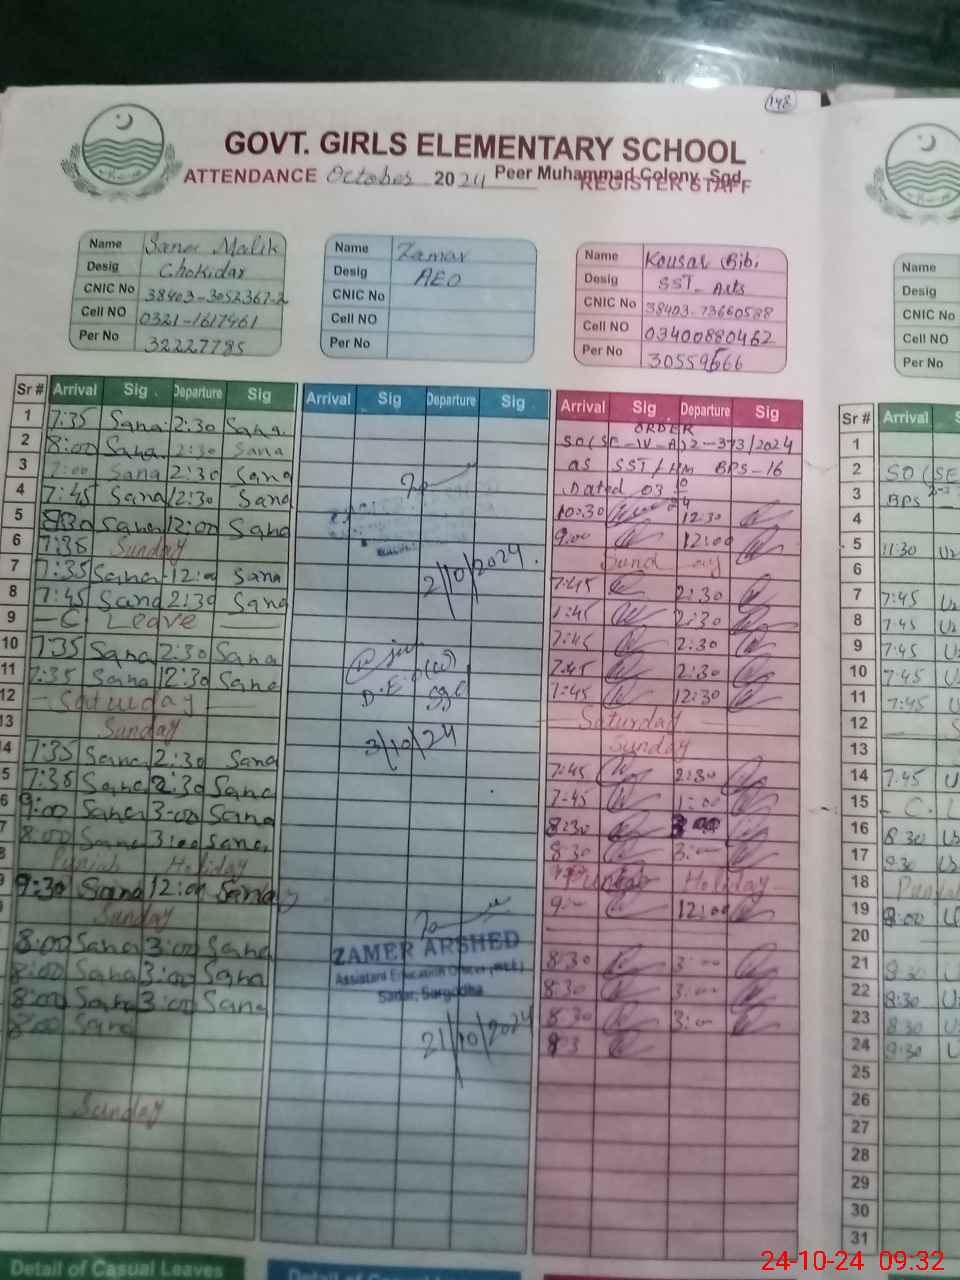 148
GOVT. GIRLS ELEMENTARY SCHOOL
ATTENDANCE October 2024 Peer Muhammad Colony, Sgd.
REGISTER STAFF
Name Sana Malik
Desig Chokidar
CNIC No 38403-3052367-2
Cell NO 0321-1617461
Per No 32227785
Name Zamar
Desig AEO
CNIC No
Cell NO
Per No
Name Kousar Bibi
Desig SST- Arts
CNIC No 38403-73660588
Cell NO 03400880462
Per No 30559666
Name
Desig
CNIC No
Cell NO
Per No
Sr # Arrival Sig. Departure Sig
1 7:35 Sana 2:30 Sana
2 8:00 Sana 2:30 Sana
3 7:00 Sana 2:30 Sana
4 7:45 Sana 12:30 Sana
5 8:30 Sana 12:00 Sana
6 7:35 Sunday
7 7:35 Sana 12:00 Sana
8 7:45 Sana 2:30 Sana
9 - C Leave
10 7:35 Sana 2:30 Sana
11 7:35 Sana 12:30 Sana
12 - Saturday
13 Sunday
14 7:35 Sana 2:30 Sana
5 7:36 Sana 2:30 Sana
6 9:00 Sana 3:00 Sana
7 8:00 Sana 3:00 Sana
8 Punjab Holiday
9 9:30 Sana 12:00 Sana
Sunday
8:00 Sana 3:00 Sana
8:00 Sana 3:00 Sana
8:00 Sana 3:00 Sana
8:00 Sana
Sunday
Arrival Sig Departure Sig.
2/10/2024.
D.E.O (W)
Sgd
3/10/24
ZAMER ARSHED
Assistant Education Officer (W-EE)
Sadar, Sargodha
21/10/2024
Arrival Sig Departure Sig
ORDER
SO(SE-IV-A)2-373/2024
as SST/HM BPS-16
Dated 03 10 24
10:30 12:30
9:00 12:00
Sunday
7:45 2:30
7:45 2:30
7:45 2:30
7:45 2:30
7:45 12:30
Saturday
Sunday
7:45 2:30
7:45 1:00
8:30
8:30 3:00
Punjab Holiday
9:00 12:00
8:30 3:00
8:30 3:00
8:30 3:00
8 3
Sr # Arrival S
1
2 SO(SE
3 BPS
4
5 11:30
6
7 7:45
8 7:45
9 7:45
10 7:45
11 7:45
12 S
13
14 7:45
15 - C. L
16 8:30
17 9:30
18 Punja
19 8:00
20
21 8:30
22 8:30
23 8:30
24 9:30
25
26
27
28
29
30
31
Detail of Casual Leaves
Detail of Casual Leaves
24-10-24 09:32